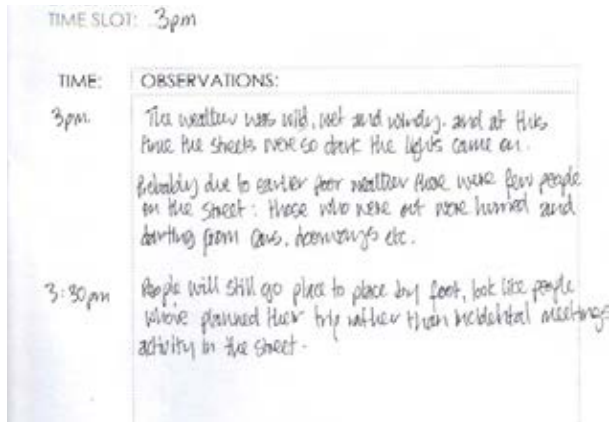 TIME SLOT: 3pm
TIME: OBSERVATIONS:
3pm. The weather was wild, wet and windy. and at this
time the streets were so dark the lights came on.
Probably due to earlier poor weather there were few people
on the street: those who were out were hurried and
darting from cars, doorways etc.
3:30pm People will still go place to place by foot, look like people
who've planned their trip rather than incidental meetings
activity in the street.